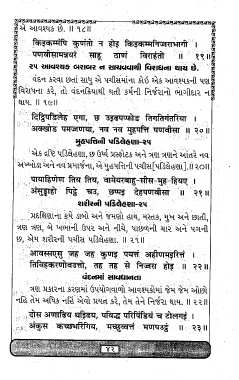 એ આવશ્યક છે. ॥ ૧૮॥
किइकम्मंपि कुणंतो न होइ किइकम्मनिज्जराभागी ।
पणवीसामन्नयरं साहू ठाणं विराहंतो ॥ १९॥
૨૫ આવશ્યક બરાબર ન સાચવવાથી વિરાધના થાય છે.
વંદન કરવા છતાં સાધુ એ પચીસમાંના કોઈ એક આવશ્યકની પણ
વિરાધના કરે, તો વંદનક્રિયાથી થતી કર્મની નિર્જરાનો ભાગીદાર ન
થાય. ॥ ૧૯॥
दिट्ठिपडिलेह एगा, छ उड्ढपप्फोड तिगतिगंतरिया ।
अक्खोड पमज्जणया, नव नव मुहपत्ति पणवीसा ॥ २०॥
મુહપત્તિની પડિલેહણા-૨૫
એક દૃષ્ટિ પડિલેહણા, છ ઉર્ધ્વ પ્રસ્ફોટક અને ત્રણ ત્રણને આંતરે નવ
અખ્ખોડા અને નવ પ્રમાર્જના, એ મુહપત્તિની પચીસ [પડિલેહણા]॥૨૦॥
पायाहिणेण तिय तिय, वामेयरबाहु-सीस-मुह-हियए ।
अंसुड्ढाहो पिट्ठे चउ, छप्पय देहपणवीसा ॥ २१॥
શરીરની પડિલેહણા-૨૫
પ્રદક્ષિણાના ક્રમે ડાબો અને જમણો હાથ, મસ્તક, મુખ અને છાતી,
ત્રણ ત્રણ, બે ખભાની ઉપર અને નીચે, પાછળની ચાર અને પગની
છ, એમ શરીરની પચીસ પડિલેહણા. ॥ ૨૧॥
आवस्सएसु जह जह कुणइ पयत्तं अहीणमइरित्तं ।
तिविहकरणोवउत्तो, तह तह से निज्जरा होइ ॥ २२॥
વંદનમાં સાવધાનતા
ત્રણ પ્રકારના કરણમાં ઉપયોગવાળો આવશ્યકોમાં જેમ જેમ ઓછો
નહિ તેમ અધિક નહિ એવો પ્રયત્ન કરે, તેમ તેને નિર્જરા થાય. ॥ ૨૨॥
दोस अणाढिय थड्ढिय, पविद्ध परिपिंडियं च टोलगइं ।
अंकुस कच्छभरिंगिय, मच्छुव्वत्तं मणपउट्ठं ॥ २३॥
૪૨